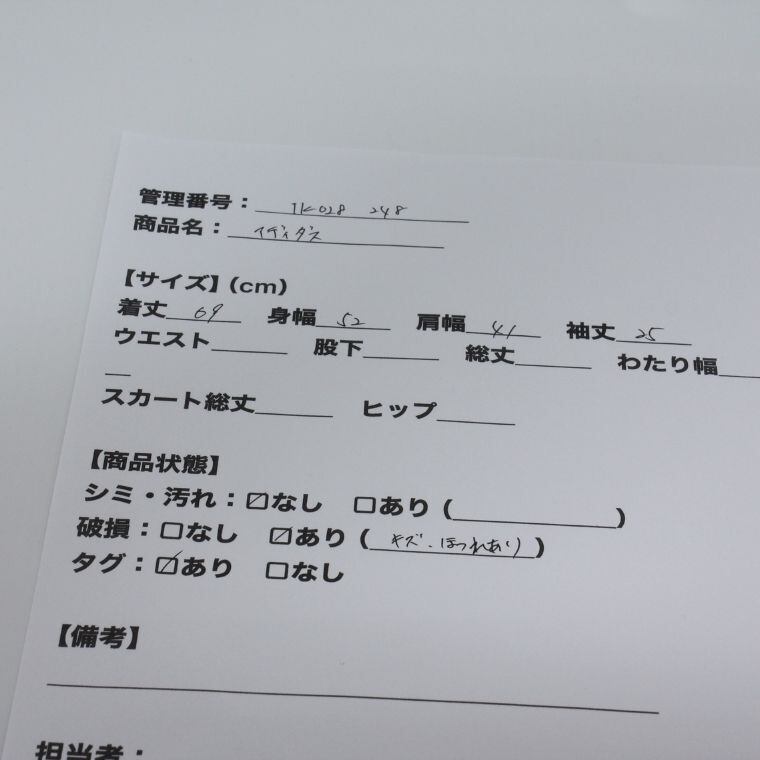 管理番号： 1K028 248
商品名： アディダス
【サイズ】(cm)
着丈 69 身幅 52 肩幅 41 袖丈 25
ウエスト______ 股下______ 総丈______ わたり幅____
__
スカート総丈______ ヒップ______
【商品状態】
シミ・汚れ：☑なし □あり (_____________)
破損：□なし ☑あり (キズ・ほつれあり)
タグ：☑あり □なし
【備考】
担当者：